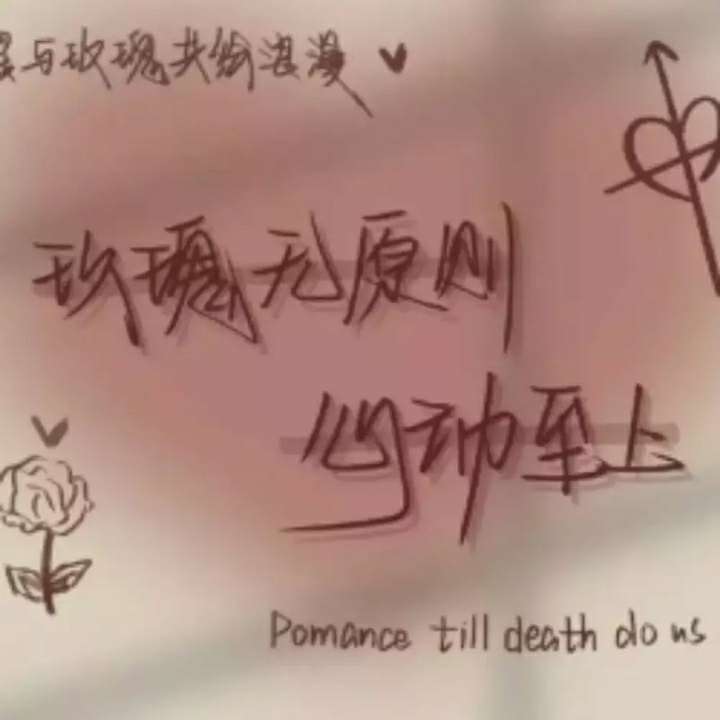 与玫瑰共绘浪漫
玫瑰无原则
心动至上
Pomance till death do us